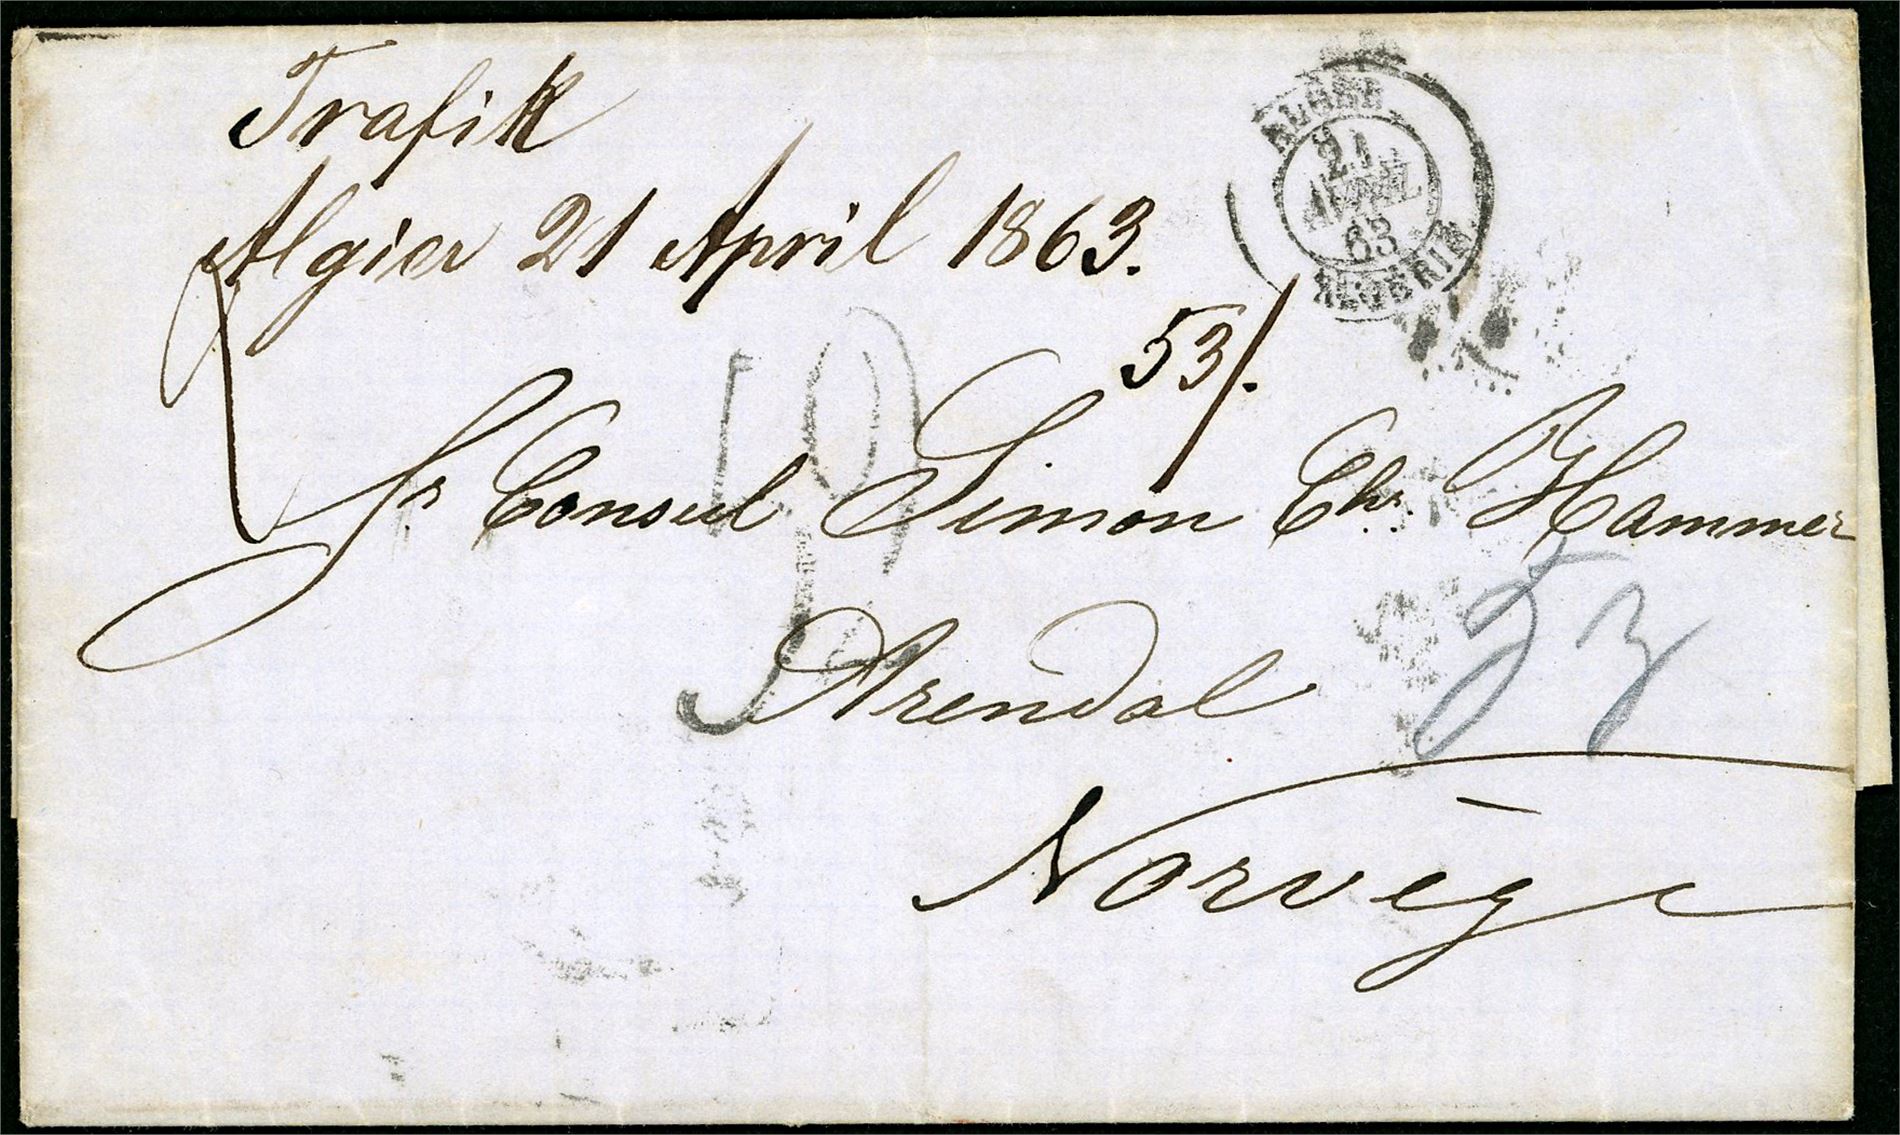 Trafik
Algier 21 April 1863.
ALGER
21
AVRIL
63
ALGÉRIE
53/.
Sr Consul Simon Chr. Hammer
53
Arendal
Norvège